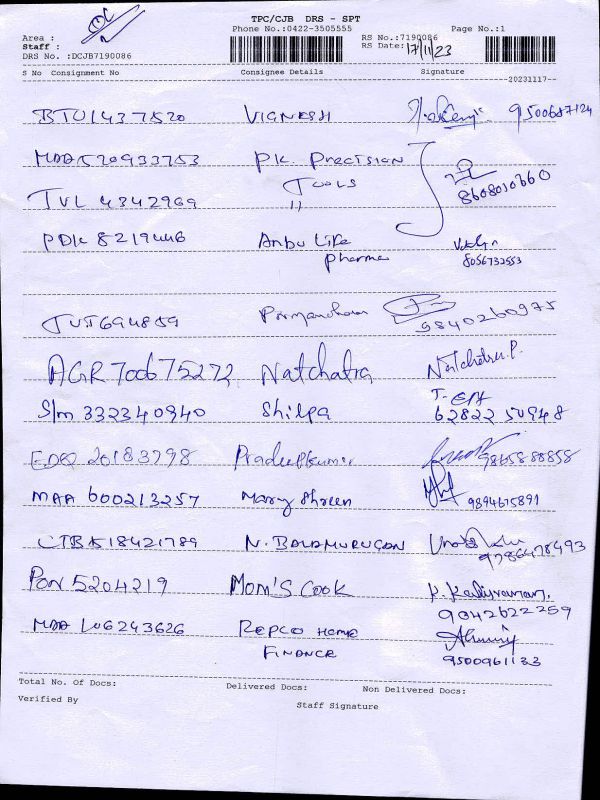 TPC/CJB DRS - SPT
Phone No.:0422-3505555
Page No.:1
Area :
Staff :
DRS No. :DCJB7190086
RS No.:7190086
RS Date: 17/11/23
S No Consignment No Consignee Details Signature
20231117
VIGNESH 9500687124
MAA520933753 PK PRECISION
TOOLS
TVL 4342969 " 8608030660
PDK 8219446 Anbu Life
pharma 8056732553
TVT694859 9840260975
AGR 700675272 Natchatra Natchatra.P.
Slm 332340940 Shilpa 62822 50948
20183798 Pradeepkumar 98658 88858
MAA 600213257 Mary Shreen 9894675891
518421789 N. BALAMURUGAN 9786478493
PON 5204219 MOM'S COOK K. Kaliyraman.
9842622259
MAA L06243626 REPCO HOME
FINANCE 9500961133
Total No. Of Docs: Delivered Docs: Non Delivered Docs:
Verified By Staff Signature